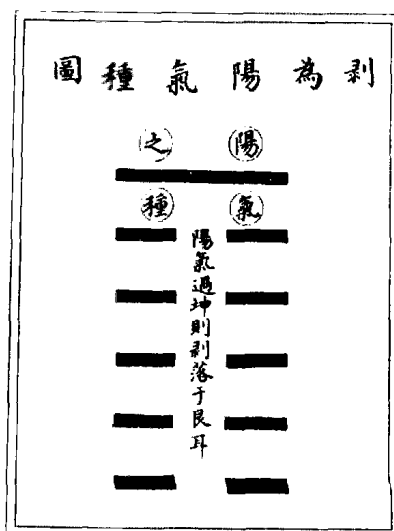 剥為陽氣種圖
陽氣
之種
陽氣遇坤則剥落于艮耳